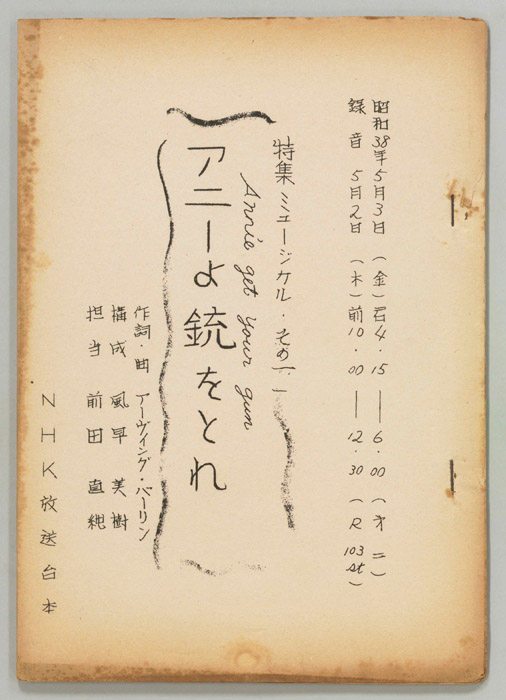 昭和38年5月3日(金)后4.15―6.00(才二)
録音 5月2日(木)前10.00―12.30(R103st)
特集ミュージカル・その一
Annie get your gun
アニーよ銃をとれ
作詞・曲 アーヴィング・バーリン
構成 風早美樹
担当 前田直純
NHK放送台本